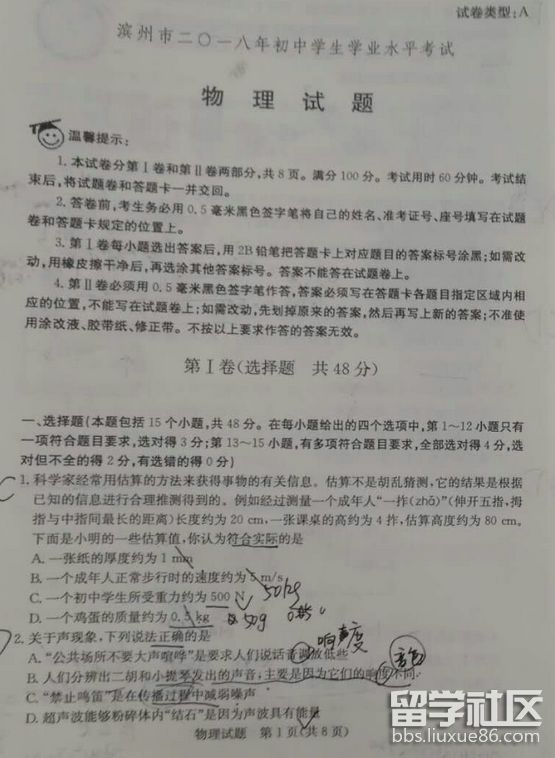 试卷类型:A
滨州市二〇一八年初中学生学业水平考试
物理试题
温馨提示:
1. 本试卷分第Ⅰ卷和第Ⅱ卷两部分,共 8 页。满分 100 分。考试用时 60 分钟。考试结
束后,将试题卷和答题卡一并交回。
2. 答卷前,考生务必用 0.5 毫米黑色签字笔将自己的姓名、准考证号、座号填写在试题
卷和答题卡规定的位置上。
3. 第Ⅰ卷每小题选出答案后,用 2B 铅笔把答题卡上对应题目的答案标号涂黑;如需改
动,用橡皮擦干净后,再选涂其他答案标号。答案不能答在试题卷上。
4. 第Ⅱ卷必须用 0.5 毫米黑色签字笔作答,答案必须写在答题卡各题目指定区域内相
应的位置,不能写在试题卷上;如需改动,先划掉原来的答案,然后再写上新的答案;不准使
用涂改液、胶带纸、修正带。不按以上要求作答的答案无效。
第Ⅰ卷(选择题 共 48 分)
一、选择题(本题包括 15 个小题,共 48 分。在每小题给出的四个选项中,第 1～12 小题只有
一项符合题目要求,选对得 3 分;第 13～15 小题,有多项符合题目要求,全部选对得 4 分,选
对但不全的得 2 分,有选错的得 0 分)
C 1. 科学家经常用估算的方法来获得事物的有关信息。估算不是胡乱猜测,它的结果是根据
已知的信息进行合理推测得到的。例如经过测量一个成年人“一拃(zhǎ)”(伸开五指,拇
指与中指间最长的距离)长度约为 20 cm,一张课桌的高约为 4 拃,估算高度约为 80 cm。
下面是小明的一些估算值,你认为符合实际的是
A. 一张纸的厚度约为 1 mm
B. 一个成年人正常步行时的速度约为 5 m/s
C. 一个初中学生所受重力约为 500 N 50kg
D. 一个鸡蛋的质量约为 0.5 kg 50g
2. 关于声现象,下列说法正确的是 响度
A. “公共场所不要大声喧哗”是要求人们说话音调放低些 音色
B. 人们分辨出二胡和小提琴发出的声音,主要是因为它们的响度不同
C. “禁止鸣笛”是在传播过程中减弱噪声
D. 超声波能够粉碎体内“结石”是因为声波具有能量
物理试题 第 1 页(共 8 页)
留学社区
bbs.liuxue86.com